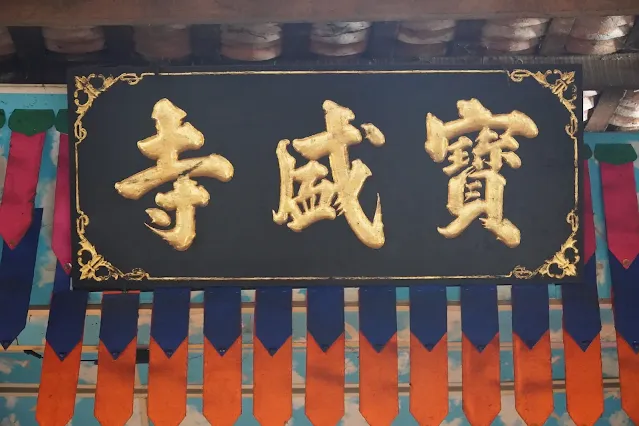 寶盛寺